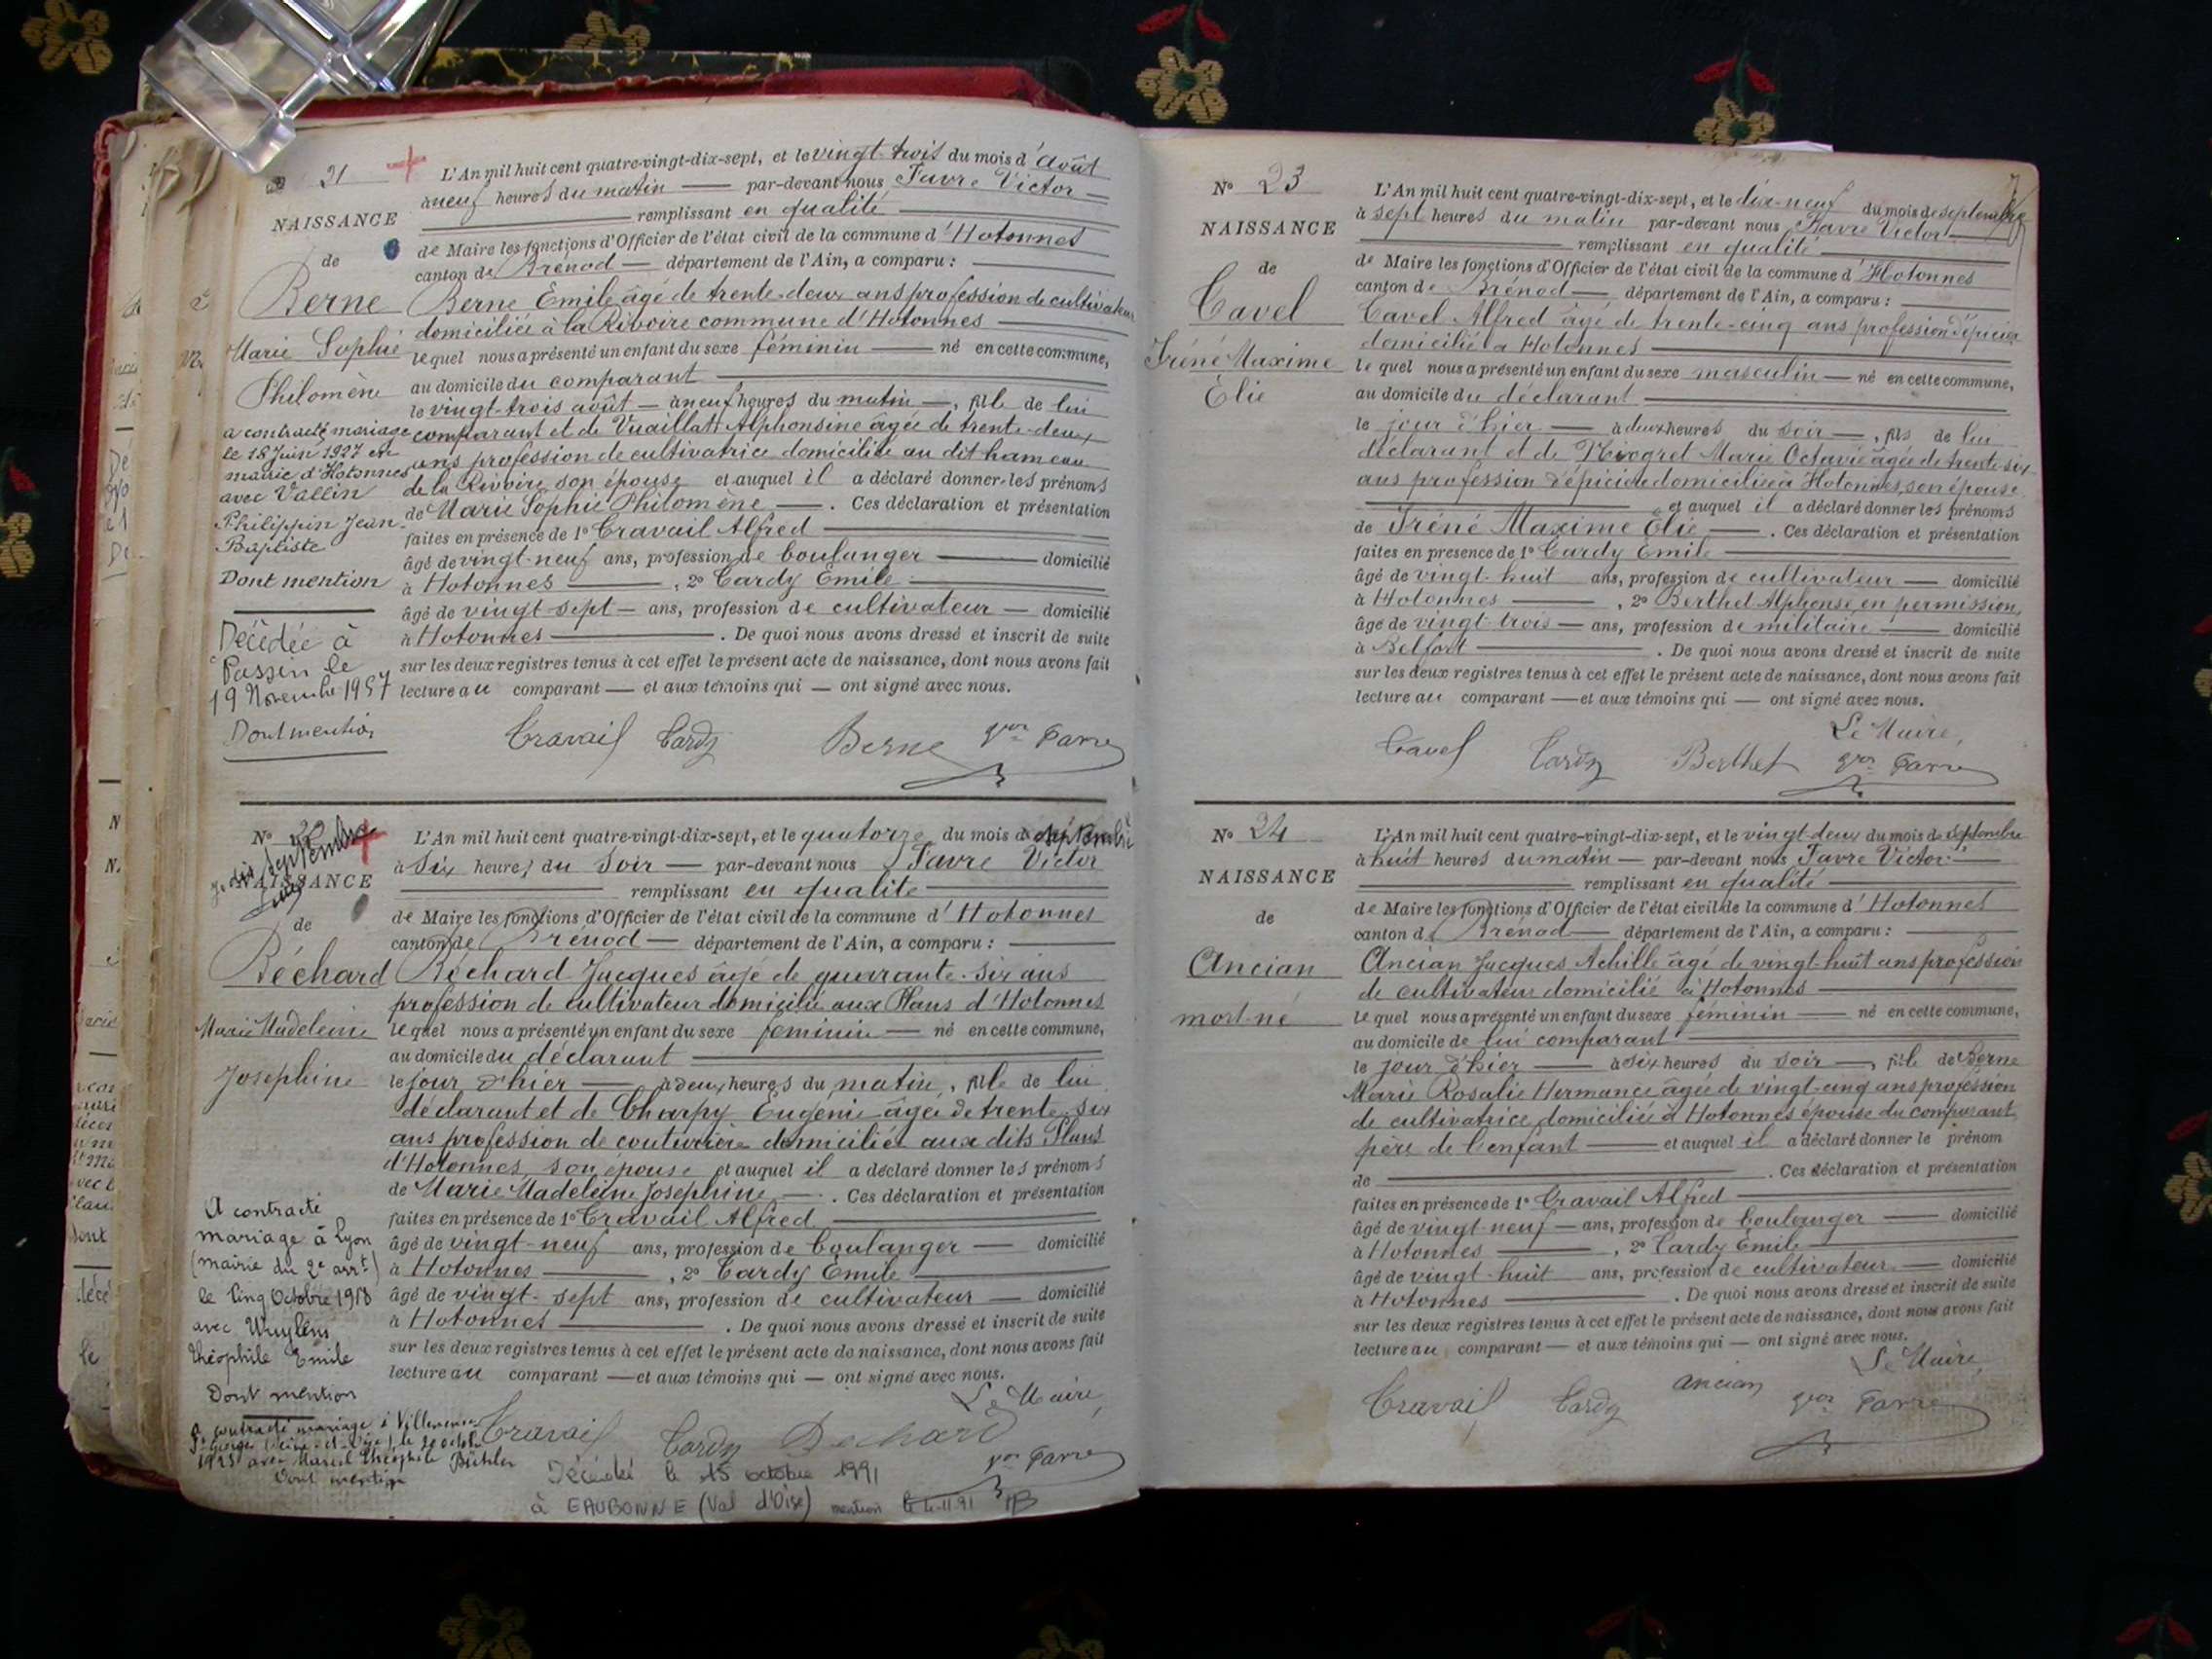 21
NAISSANCE
de
Berne
Marie Sophie
Philomène
a contracté mariage
le 18 Juin 1927 en
mairie d'Hotonnes
avec Vallin
Philippin Jean-
Baptiste
Dont mention
Décédée à
Passin le
19 Novembre 1957
Dont mention
L'An mil huit cent quatre-vingt-dix-sept, et le vingt-trois du mois d'Août
à neuf heures du matin — par-devant nous Favre Victor —
remplissant en qualité
de Maire les fonctions d'Officier de l'état civil de la commune d'Hotonnes
canton de Brénod — département de l'Ain, a comparu :
Berne Émile âgé de trente-deux ans profession de cultivateur
domiciliée à la Rivoire commune d'Hotonnes
lequel nous a présenté un enfant du sexe féminin — né en cette commune,
au domicile du comparant
le vingt-trois août — à neuf heures du matin —, fille de lui
comparant et de Vuaillat Alphonsine âgée de trente-deux
ans profession de cultivatrice domiciliée au dit hameau
de la Rivoire son épouse et auquel il a déclaré donner les prénoms
de Marie Sophie Philomène — . Ces déclaration et présentation
faites en présence de 1° Travail Alfred
âgé de vingt-neuf ans, profession de boulanger — domicilié
à Hotonnes — , 2° Tardy Émile
âgé de vingt-sept — ans, profession de cultivateur — domicilié
à Hotonnes — . De quoi nous avons dressé et inscrit de suite
sur les deux registres tenus à cet effet le présent acte de naissance, dont nous avons fait
lecture au comparant — et aux témoins qui — ont signé avec nous.
Travail Tardy Berne Vor Favre
N° 22
Je dis septembre
NAISSANCE
de
Béchard
Marie Madeleine
Josephine
A contracté
mariage à Lyon
(mairie du 2e arrt)
le Cinq Octobre 1918
avec
Théophile Emile
Dont mention
A contracté mariage à Villeneuve
St Georges (Seine-et-Oise), le 20 octobre
1923 avec Marcel Théophile
Dont mention
L'An mil huit cent quatre-vingt-dix-sept, et le quatorze du mois de septembre
à six heures du soir — par-devant nous Favre Victor
remplissant en qualité
de Maire les fonctions d'Officier de l'état civil de la commune d'Hotonnes
canton de Brénod — département de l'Ain, a comparu :
Béchard Jacques âgé de quarante-six ans
profession de cultivateur domicilié aux Plans d'Hotonnes
lequel nous a présenté un enfant du sexe féminin — né en cette commune,
au domicile du déclarant
le jour d'hier — à deux heures du matin, fille de lui
déclarant et de Charpy Eugénie âgée de trente-six
ans profession de couturière domiciliée aux dits Plans
d'Hotonnes, son épouse et auquel il a déclaré donner les prénoms
de Marie Madeleine Josephine — . Ces déclaration et présentation
faites en présence de 1° Travail Alfred
âgé de vingt-neuf ans, profession de boulanger — domicilié
à Hotonnes — , 2° Tardy Émile
âgé de vingt-sept ans, profession de cultivateur — domicilié
à Hotonnes — . De quoi nous avons dressé et inscrit de suite
sur les deux registres tenus à cet effet le présent acte de naissance, dont nous avons fait
lecture au comparant — et aux témoins qui — ont signé avec nous.
Le Maire,
Travail Tardy Béchard Vor Favre
Décédée le 15 octobre 1991
à EAUBONNE (Val d'Oise) mention le 4-11-91
N° 23
NAISSANCE
de
Tavel
Iréné Maxime
Élie
L'An mil huit cent quatre-vingt-dix-sept, et le dix-neuf du mois de septembre
à sept heures du matin par-devant nous Favre Victor
remplissant en qualité
de Maire les fonctions d'Officier de l'état civil de la commune d'Hotonnes
canton de Brénod — département de l'Ain, a comparu :
Tavel Alfred âgé de trente-cinq ans profession d'épicier
domicilié à Hotonnes
lequel nous a présenté un enfant du sexe masculin — né en cette commune,
au domicile du déclarant
le jour d'hier — à deux heures du soir —, fils de lui
déclarant et de Marie Octavie âgée de trente-six
ans profession d'épicière domiciliée à Hotonnes, son épouse
et auquel il a déclaré donner les prénoms
de Iréné Maxime Élie — . Ces déclaration et présentation
faites en présence de 1° Tardy Émile
âgé de vingt-huit ans, profession de cultivateur — domicilié
à Hotonnes — , 2° Berthet Alphonse, en permission,
âgé de vingt-trois — ans, profession de militaire — domicilié
à Belfort — . De quoi nous avons dressé et inscrit de suite
sur les deux registres tenus à cet effet le présent acte de naissance, dont nous avons fait
lecture au comparant — et aux témoins qui — ont signé avec nous.
Le Maire,
Tavel Tardy Berthet Vor Favre
N° 24
NAISSANCE
de
Ancian
mort-né
L'An mil huit cent quatre-vingt-dix-sept, et le vingt-deux du mois de septembre
à huit heures du matin — par-devant nous Favre Victor —
remplissant en qualité
de Maire les fonctions d'Officier de l'état civil de la commune d'Hotonnes
canton de Brénod — département de l'Ain, a comparu :
Ancian Jacques Achille âgé de vingt-huit ans profession
de cultivateur domicilié à Hotonnes
lequel nous a présenté un enfant du sexe féminin — né en cette commune,
au domicile de lui comparant
le jour d'hier — à six heures du soir —, fille de Berne
Marie Rosalie Hermance âgée de vingt-cinq ans profession
de cultivatrice domiciliée à Hotonnes épouse du comparant
père de l'enfant — et auquel il a déclaré donner le prénom
de — . Ces déclaration et présentation
faites en présence de 1° Travail Alfred
âgé de vingt-neuf — ans, profession de boulanger — domicilié
à Hotonnes — , 2° Tardy Émile
âgé de vingt-huit ans, profession de cultivateur — domicilié
à Hotonnes — . De quoi nous avons dressé et inscrit de suite
sur les deux registres tenus à cet effet le présent acte de naissance, dont nous avons fait
lecture au comparant — et aux témoins qui — ont signé avec nous.
Le Maire,
Travail Tardy Ancian Vor Favre